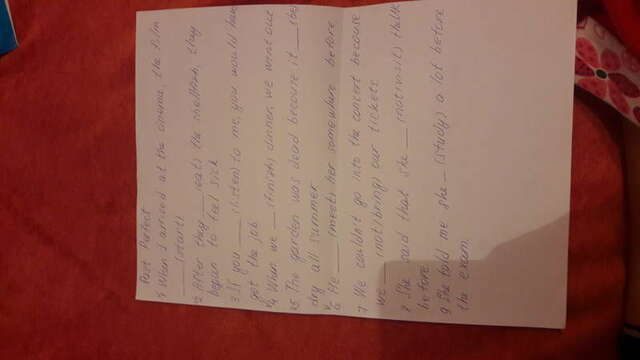 Past Perfect
1 When I arrived at the cinema, the film
___ (start)
2 After they ___ (eat) the shellfish, they
began to feel sick
3 If you ___ (listen) to me, you would have
got the job
4 When we ___ (finish) dinner, we went out
5 The garden was dead becouse it ___ (be)
dry all summer
6 He ___ (meet) her somewhere before
7 We couldn't go into the concert becouse
we ___ (not/bring) our tickets
8 She said that she ___ (not/visit) the UK
before
9 She told me she _ (study) a lot before
the exam.